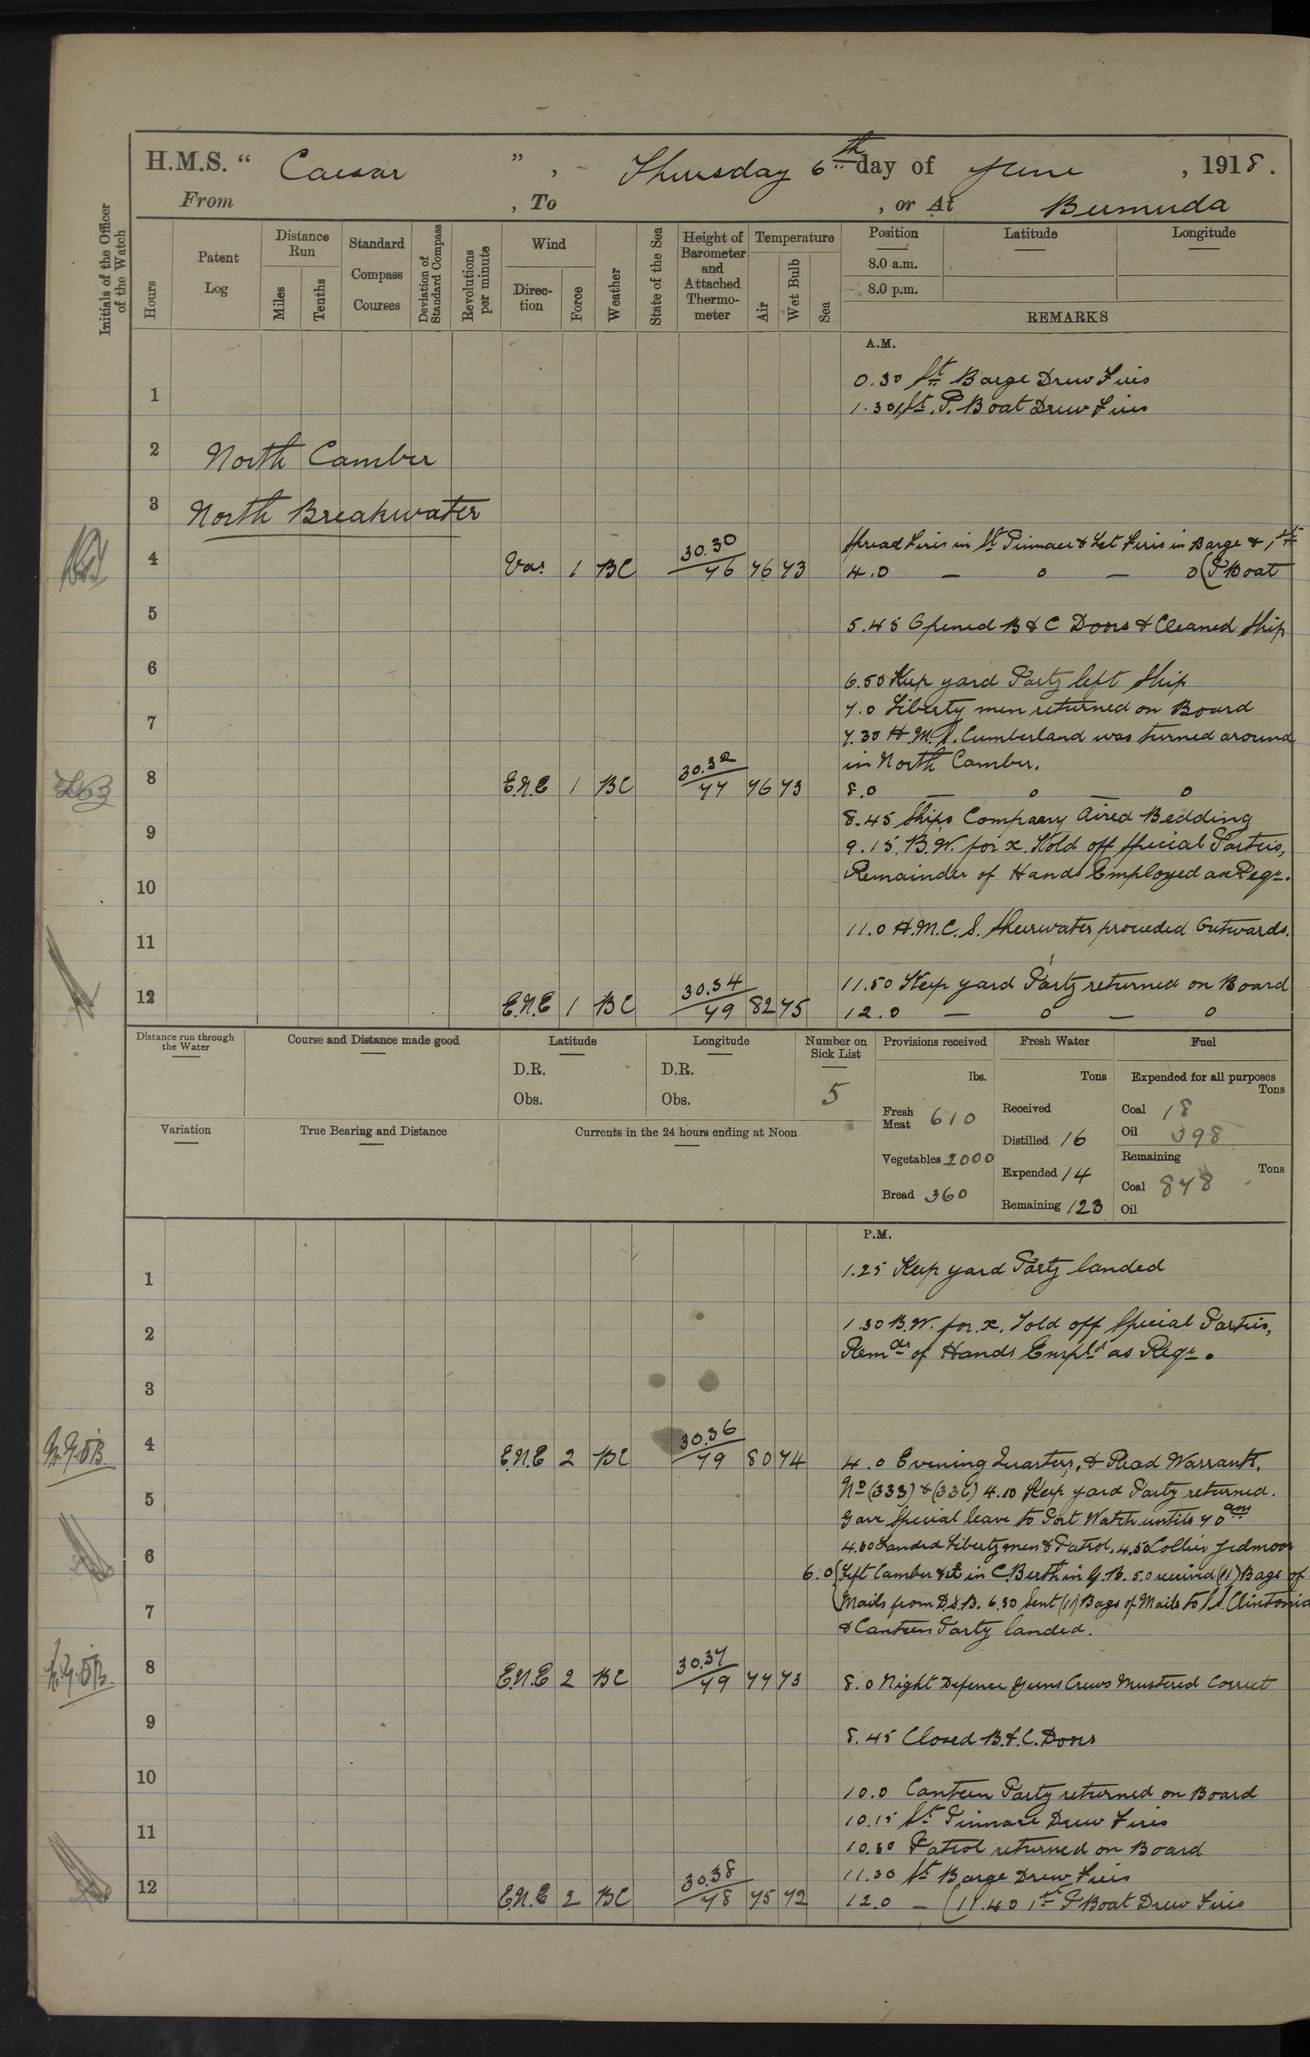 H.M.S. " Caesar " , - Thursday 6th day of June , 1918.
From , To , or At Bermuda
Initials of the Officer of the Watch
Hours
Patent Log
Distance Run
Miles
Tenths
Standard Compass Courses
Deviation of Standard Compass
Revolutions per minute
Wind
Direction
Force
Weather
State of the Sea
Height of Barometer and Attached Thermometer
Temperature
Air
Wet Bulb
Sea
Position
Latitude
Longitude
8.0 a.m.
8.0 p.m.
REMARKS
A.M.
0.30 St Barge Drew Fires
1 1.30 1st. P. Boat Drew Fires
2 North Camber
3 North Breakwater
Spread Fires in St Pinnace & Let Fires in Barge & 1st
4 Var 1 BC 30.30/76 76 73 4.0 — o — o (P Boat
5 5.45 Opened B & C Doors & Cleaned Ship
6 6.50 Keep yard Party left Ship
7.0 Liberty men returned on Board
7 7.30 H.M.S. Cumberland was turned around
in North Camber.
8 E.N.E 1 BC 30.32/77 76 73 8.0 — o — o
8.45 Ships Company Aired Bedding
9 9.15 B.W. for x. Told off Special Parties,
10 Remainder of Hands Employed as Reqr.
11 11.0 H.M.C.S. Shearwater proceeded Outwards.
11.50 Keep yard Party returned on Board
12 E.N.E 1 BC 30.34/79 82 75 12.0 — o — o
Distance run through the Water
Course and Distance made good
Latitude
D.R.
Obs.
Longitude
D.R.
Obs.
Number on Sick List
5
Provisions received
lbs.
Fresh Meat 610
Vegetables 2000
Bread 360
Fresh Water
Tons
Received
Distilled 16
Expended 14
Remaining 123
Fuel
Expended for all purposes
Tons
Coal 18
Oil 398
Remaining
Tons
Coal 878
Oil
Variation
True Bearing and Distance
Currents in the 24 hours ending at Noon
P.M.
1 1.25 Keep yard Party landed
2 1.30 B.W. for x. Told off Special Parties,
Remdr of Hands Empld as Reqr.
3
4 E.N.E 2 BC 30.36/79 80 74 4.0 Evening Quarters, & Read Warrants,
5 4.10 Keep yard Party returned.
Gave Special leave to Port Watch until 7 0 am
6 4.30 Landed Liberty men & Patrol. 4.50 Collier Jedmoor
6.0 (Left Camber & in C. Berth in G.B. 5.0 received (11) Bags of
7 Mails from D.S.B. 6.30 Sent (11) Bags of Mails to S.S. Clintonia
& Canteen Party landed.
8 E.N.E 2 BC 30.37/79 77 73 8.0 Night Defence Guns Crews Mustered Correct
9 8.45 Closed B.&.C. Doors
10 10.0 Canteen Party returned on Board
11 10.15 St Pinnace Drew Fires
10.30 Patrol returned on Board
11.30 St Barge Drew Fires
12 E.N.E 2 BC 30.38/78 75 72 12.0 — (11.40 1st P Boat Drew Fires